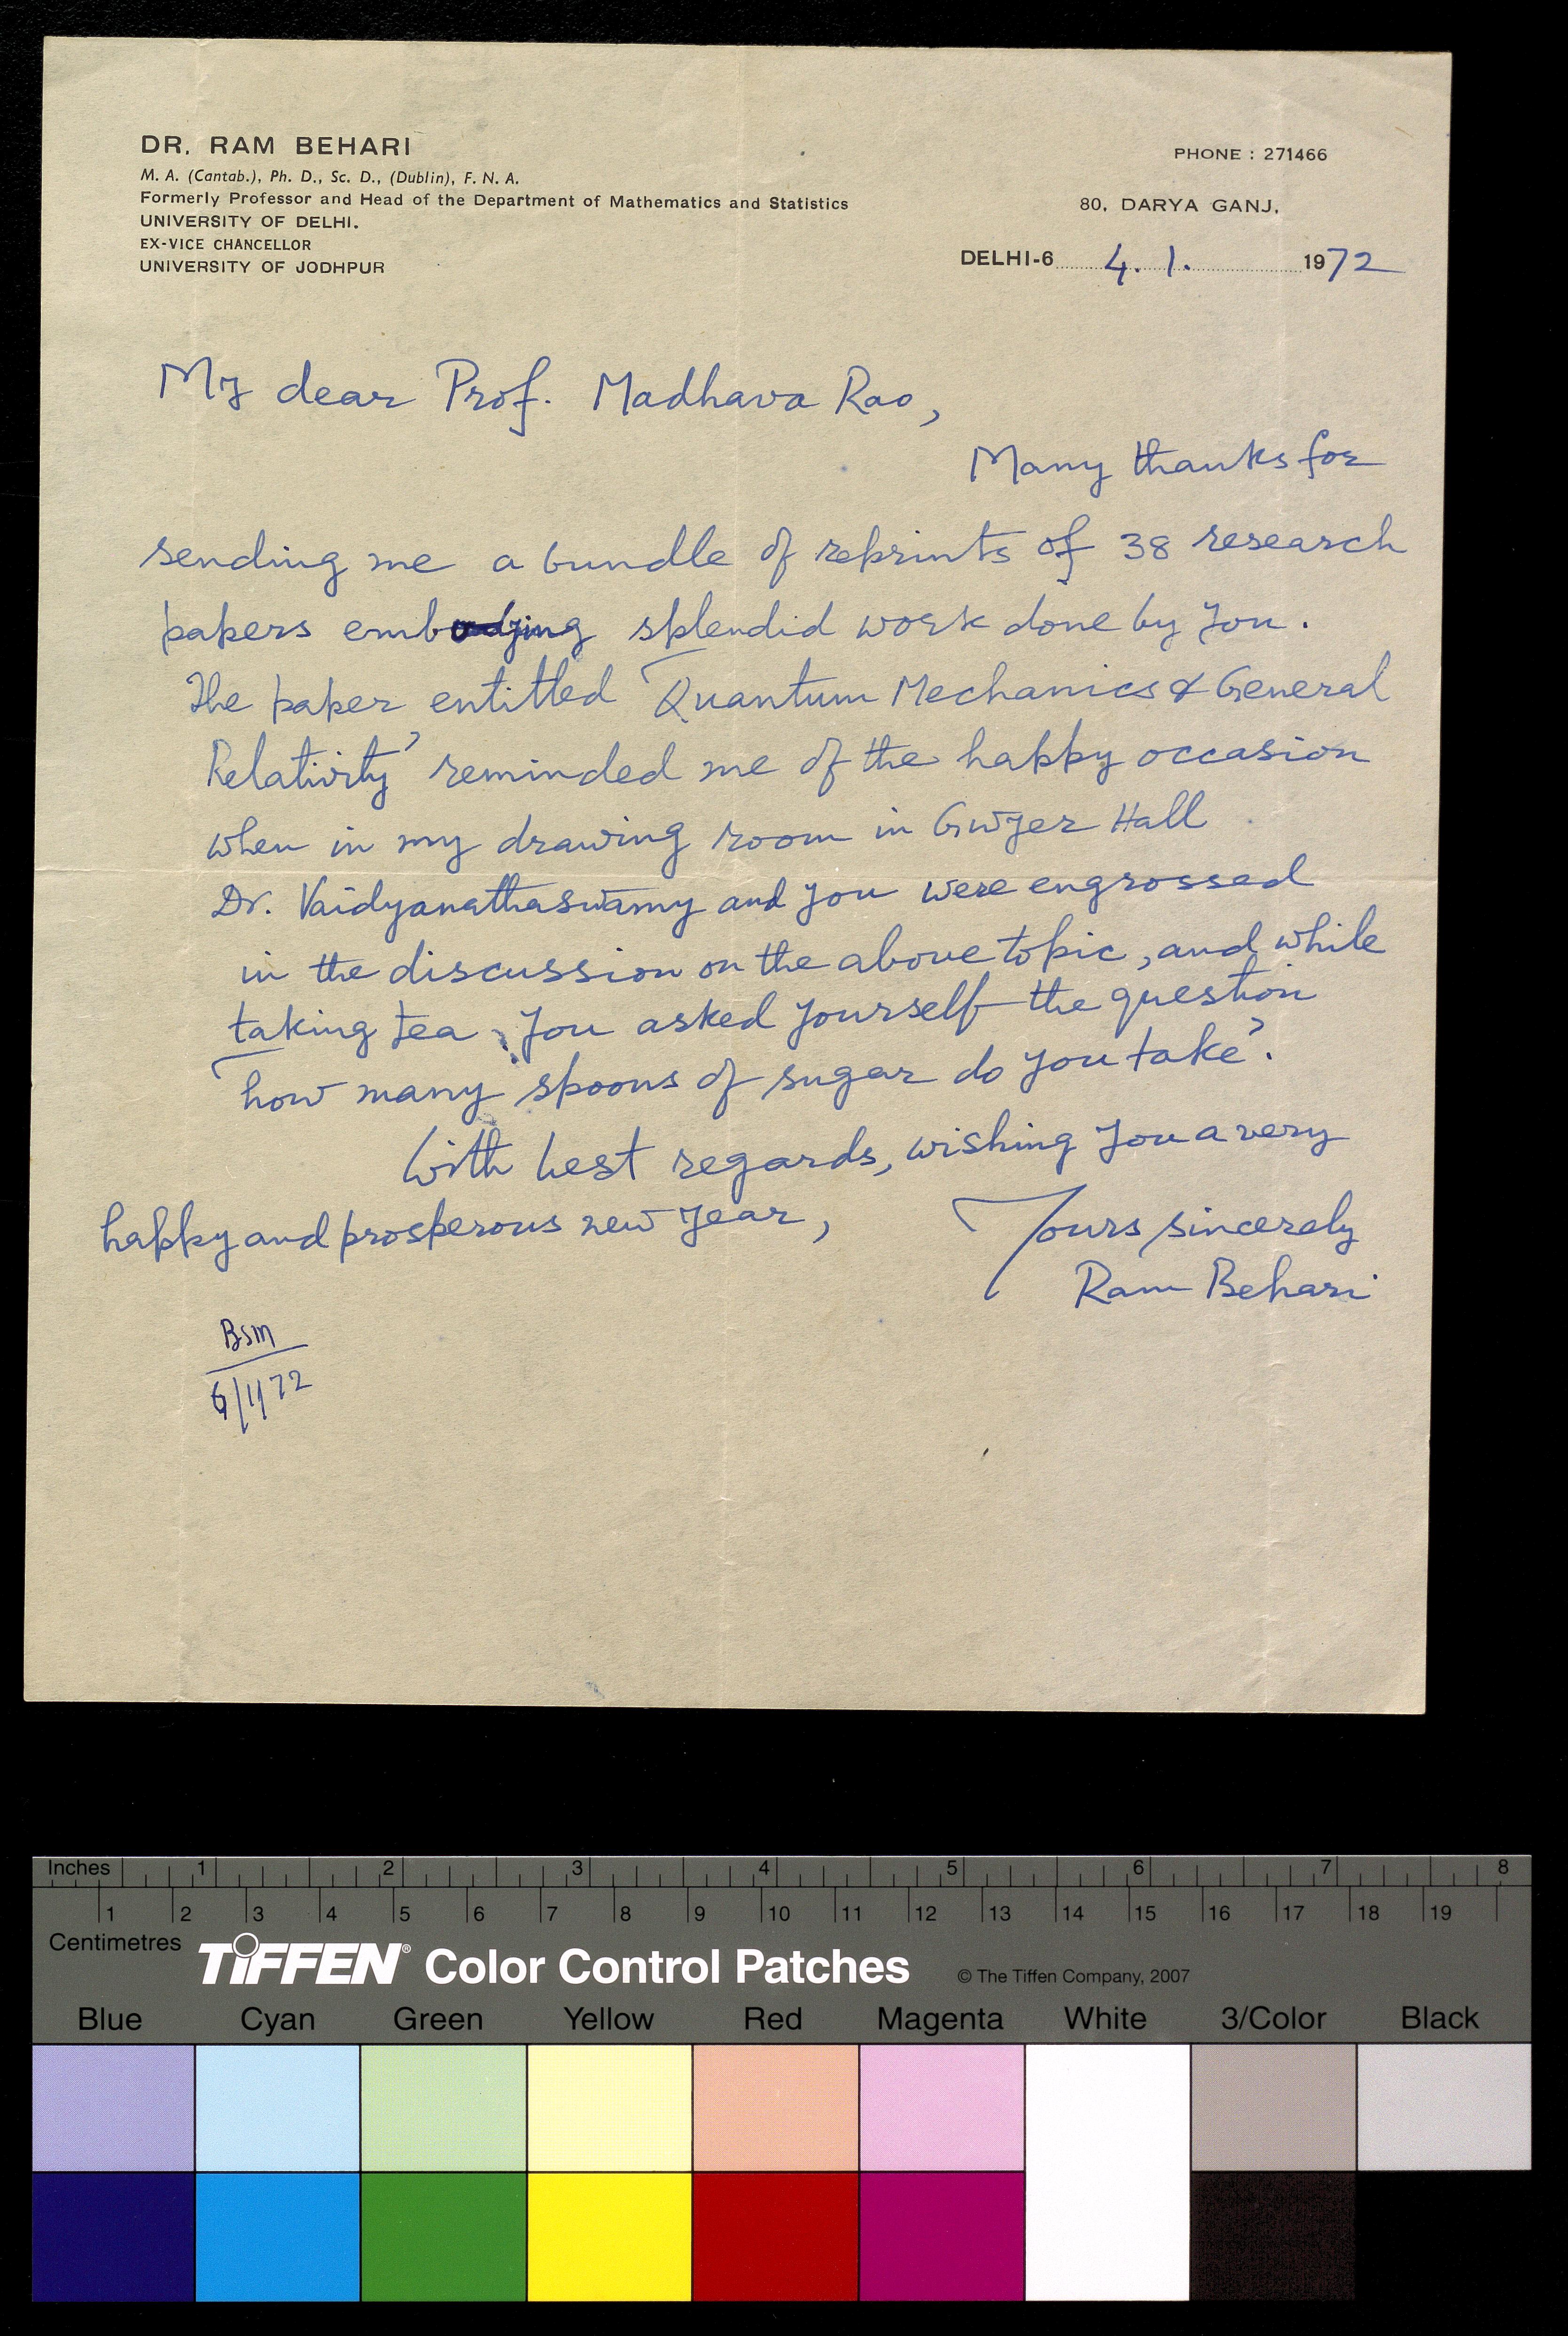 DR. RAM BEHARI
M. A. (Cantab.), Ph. D., Sc. D., (Dublin), F. N. A.
Formerly Professor and Head of the Department of Mathematics and Statistics
UNIVERSITY OF DELHI.
EX-VICE CHANCELLOR
UNIVERSITY OF JODHPUR
PHONE : 271466
80, DARYA GANJ,
DELHI-6 4. 1. 1972
My dear Prof. Madhava Rao,
Many thanks for
sending me a bundle of reprints of 38 research
papers embodying splendid work done by you.
The paper entitled 'Quantum Mechanics & General
Relativity' reminded me of the happy occasion
when in my drawing room in Gwyer Hall
Dr. Vaidyanathaswamy and you were engrossed
in the discussion on the above topic, and while
taking tea, you asked yourself the question
'how many spoons of sugar do you take'.
With best regards, wishing you a very
happy and prosperous new year,
Yours sincerely
Ram Behari
BSM
6/1/72
Inches 1 2 3 4 5 6 7 8
1 2 3 4 5 6 7 8 9 10 11 12 13 14 15 16 17 18 19
Centimetres
TIFFEN® Color Control Patches © The Tiffen Company, 2007
Blue Cyan Green Yellow Red Magenta White 3/Color Black